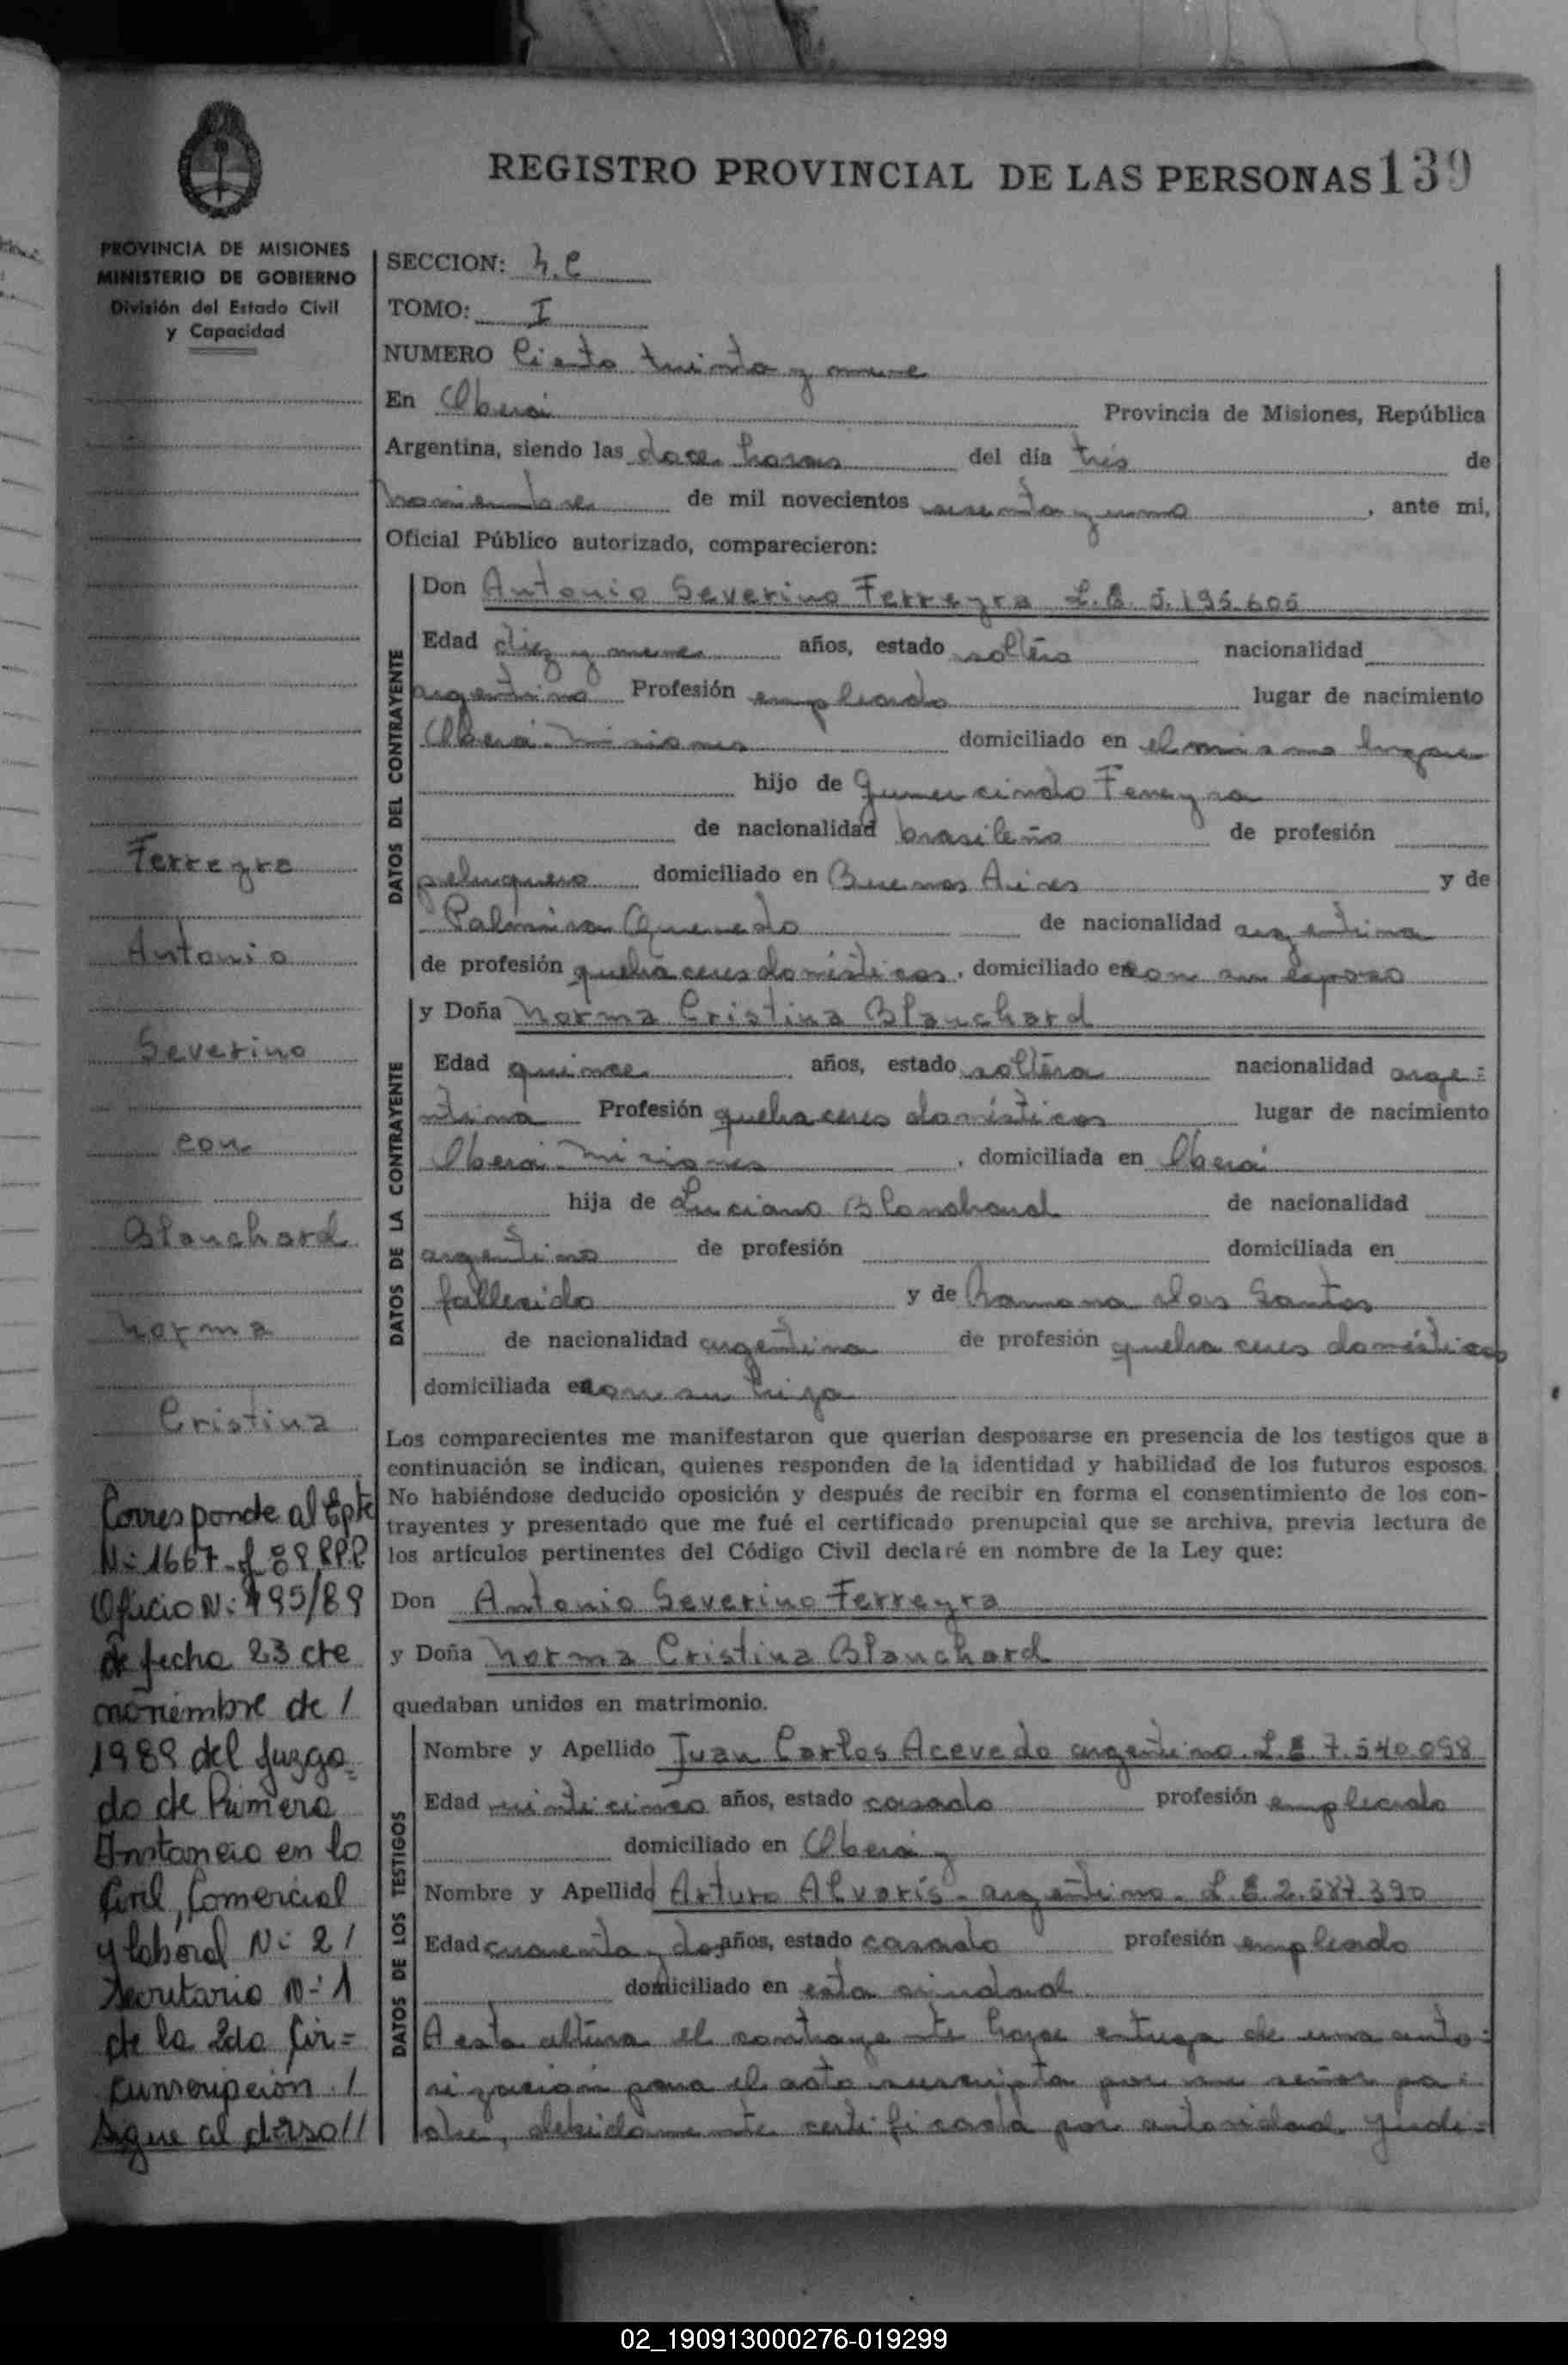 REGISTRO PROVINCIAL DE LAS PERSONAS 139
PROVINCIA DE MISIONES
MINISTERIO DE GOBIERNO
División del Estado Civil
y Capacidad
SECCION: h.C
TOMO: I
NUMERO Ciento treinta y nueve
En Oberá Provincia de Misiones, República
Argentina, siendo las doce horas del día tres de
noviembre de mil novecientos sesenta y uno, ante mi,
Oficial Público autorizado, comparecieron:
DATOS DEL CONTRAYENTE
Don Antonio Severino Ferreyra L.E. 5.195.605
Edad diez y nueve años, estado soltero nacionalidad
argentino Profesión empleado lugar de nacimiento
Oberá-Misiones domiciliado en el mismo lugar
hijo de Gumercindo Ferreyra
de nacionalidad brasileño de profesión
peluquero domiciliado en Buenos Aires y de
Palmira Quevedo de nacionalidad argentina
de profesión quehaceres domésticos, domiciliado en con su esposo
DATOS DE LA CONTRAYENTE
y Doña Norma Cristina Blanchard
Edad quince años, estado soltera nacionalidad arge=
ntina Profesión quehaceres domésticos lugar de nacimiento
Oberá-Misiones, domiciliada en Oberá
hija de Luciano Blanchard de nacionalidad
argentino de profesión domiciliada en
fallecido y de Ramona dos Santos
de nacionalidad argentina de profesión quehaceres domésticos
domiciliada en con su hija
Los comparecientes me manifestaron que querían desposarse en presencia de los testigos que a
continuación se indican, quienes responden de la identidad y habilidad de los futuros esposos.
No habiéndose deducido oposición y después de recibir en forma el consentimiento de los con-
trayentes y presentado que me fué el certificado prenupcial que se archiva, previa lectura de
los artículos pertinentes del Código Civil declaré en nombre de la Ley que:
Don Antonio Severino Ferreyra
y Doña Norma Cristina Blanchard
quedaban unidos en matrimonio.
DATOS DE LOS TESTIGOS
Nombre y Apellido Juan Carlos Acevedo argentino. L.E 7.540.098
Edad veinticinco años, estado casado profesión empleado
domiciliado en Oberá y
Nombre y Apellido Arturo Alvaris- argentino- L.E 2.587.390
Edad cuarenta y dos años, estado casado profesión empleado
domiciliado en esta ciudad
A esta altura el contrayente hace entrega de una auto=
rización para el acto suscripta por su señor pa=
dre, debidamente certificada por autoridad judi=
Ferreyra
Antonio
Severino
con
Blanchard
Norma
Cristina
Corresponde al Epte
N: 1667-f 89 R.P.P
Oficio N: 495/89
de fecha 23 de
noviembre de /
1989 del Juzga=
do de Primera
Instancia en lo
Civil, Comercial
y laboral N: 2 /
Secretario N: 1
de la 2da Cir=
cunscripción. /
Sigue al dorso//
02_190913000276-019299